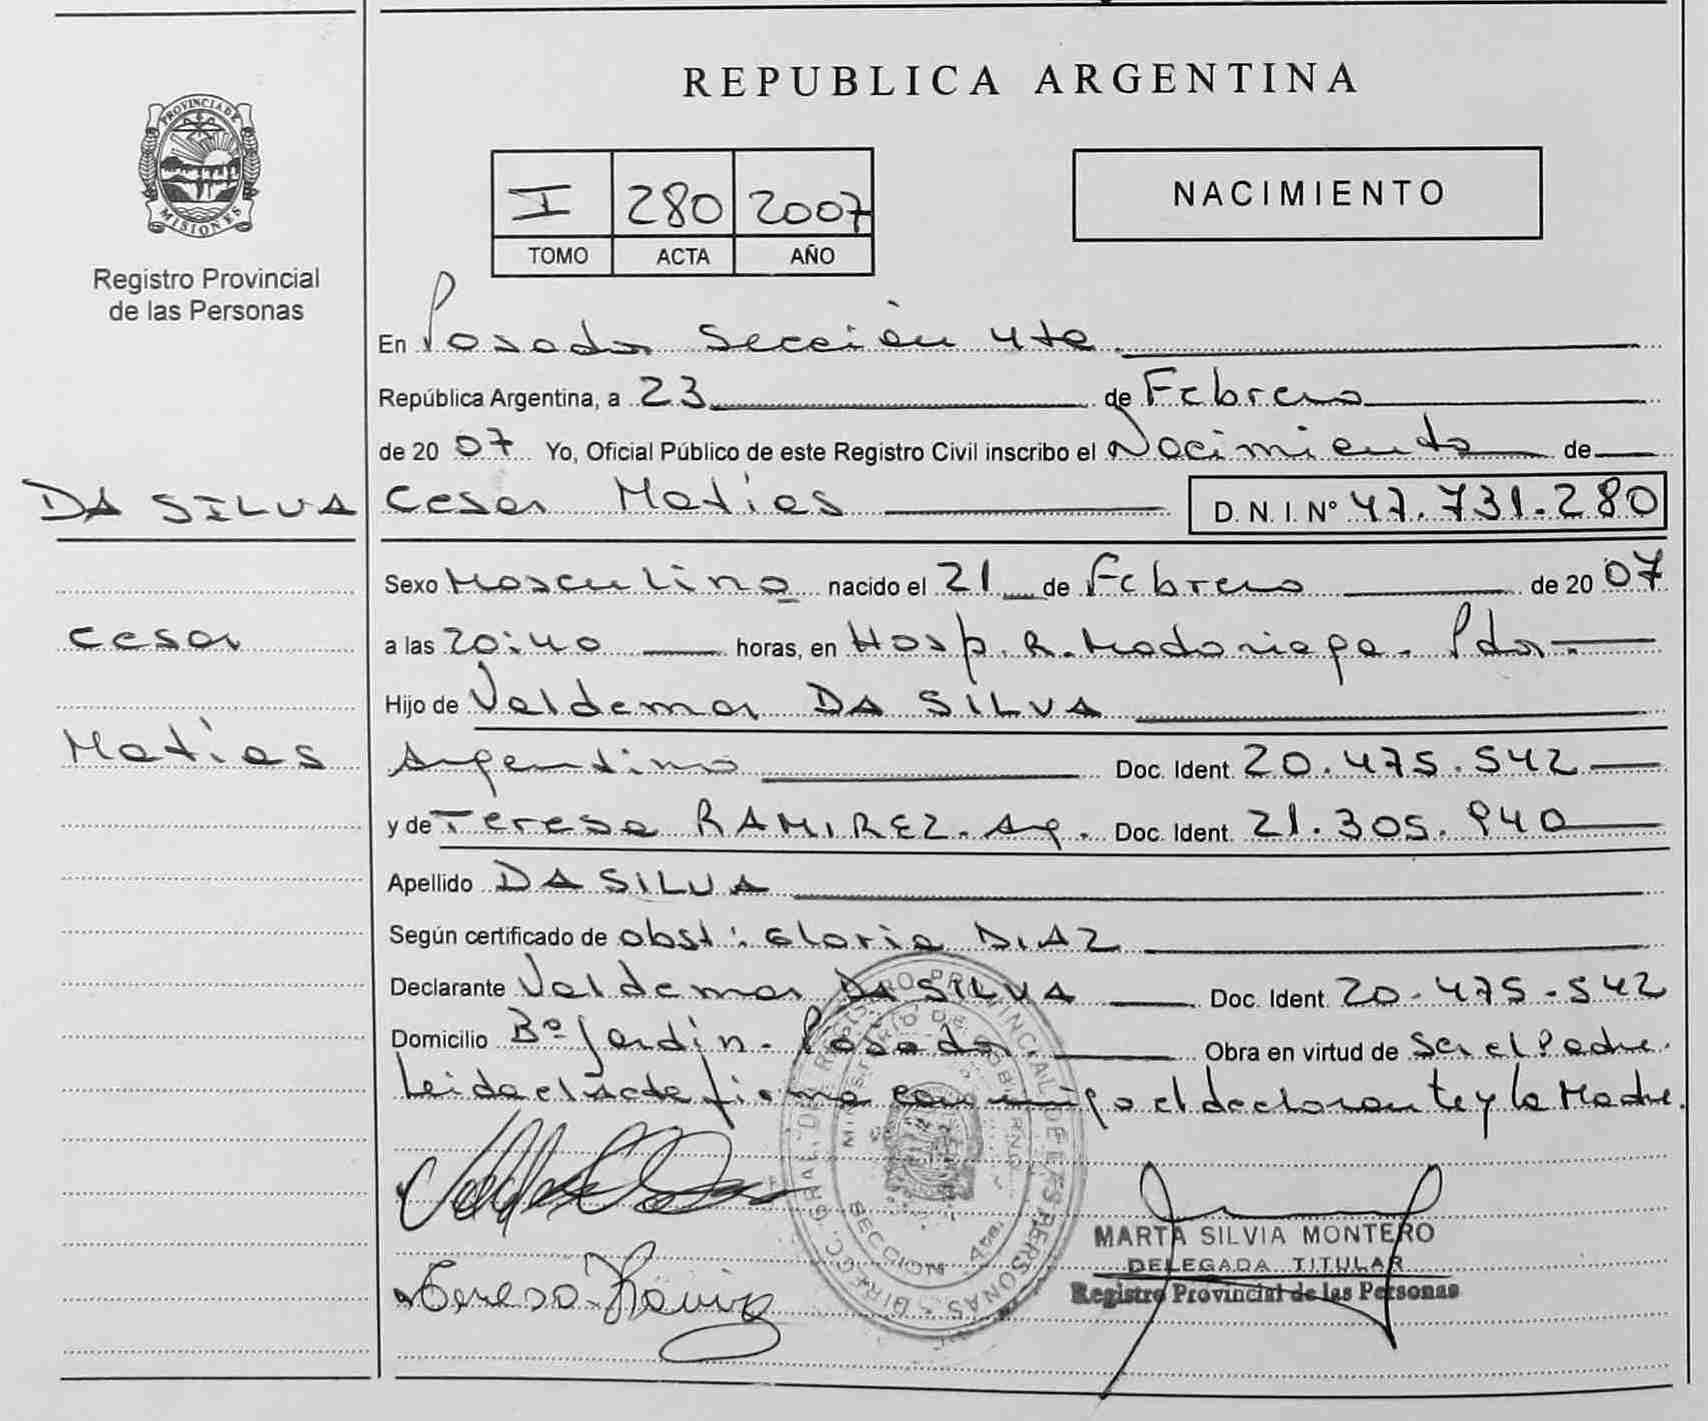 REPUBLICA ARGENTINA
PROVINCIA DE MISIONES
Registro Provincial
de las Personas
I 280 2007
TOMO ACTA AÑO
NACIMIENTO
En Posadas Sección 4ta.
República Argentina, a 23 de Febrero
de 2007 Yo, Oficial Público de este Registro Civil inscribo el Nacimiento de
DA SILVA Cesar Matias D.N.I. Nº 47.731.280
Sexo Masculino nacido el 21 de Febrero de 2007
Cesar
a las 20:40 horas, en Hosp. R. Madariaga. Pdas.
Hijo de Valdemar DA SILVA
Matias
Argentino Doc. Ident. 20.475.542
y de Teresa RAMIREZ. Arg. Doc. Ident. 21.305.940
Apellido DA SILVA
Según certificado de obst: Gloria DIAZ
Declarante Valdemar DA SILVA Doc. Ident. 20.475.542
Domicilio Bº Jardín. Posadas. Obra en virtud de Ser el Padre.
Leida el acta firma conmigo el declarante y la Madre.
DIRECC. GRAL. DEL REGISTRO PROVINCIAL DE LAS PERSONAS
MINISTERIO DE GOBIERNO
SECCION 4ta.
MARTA SILVIA MONTERO
DELEGADA TITULAR
Registro Provincial de las Personas
Teresa Ramirez